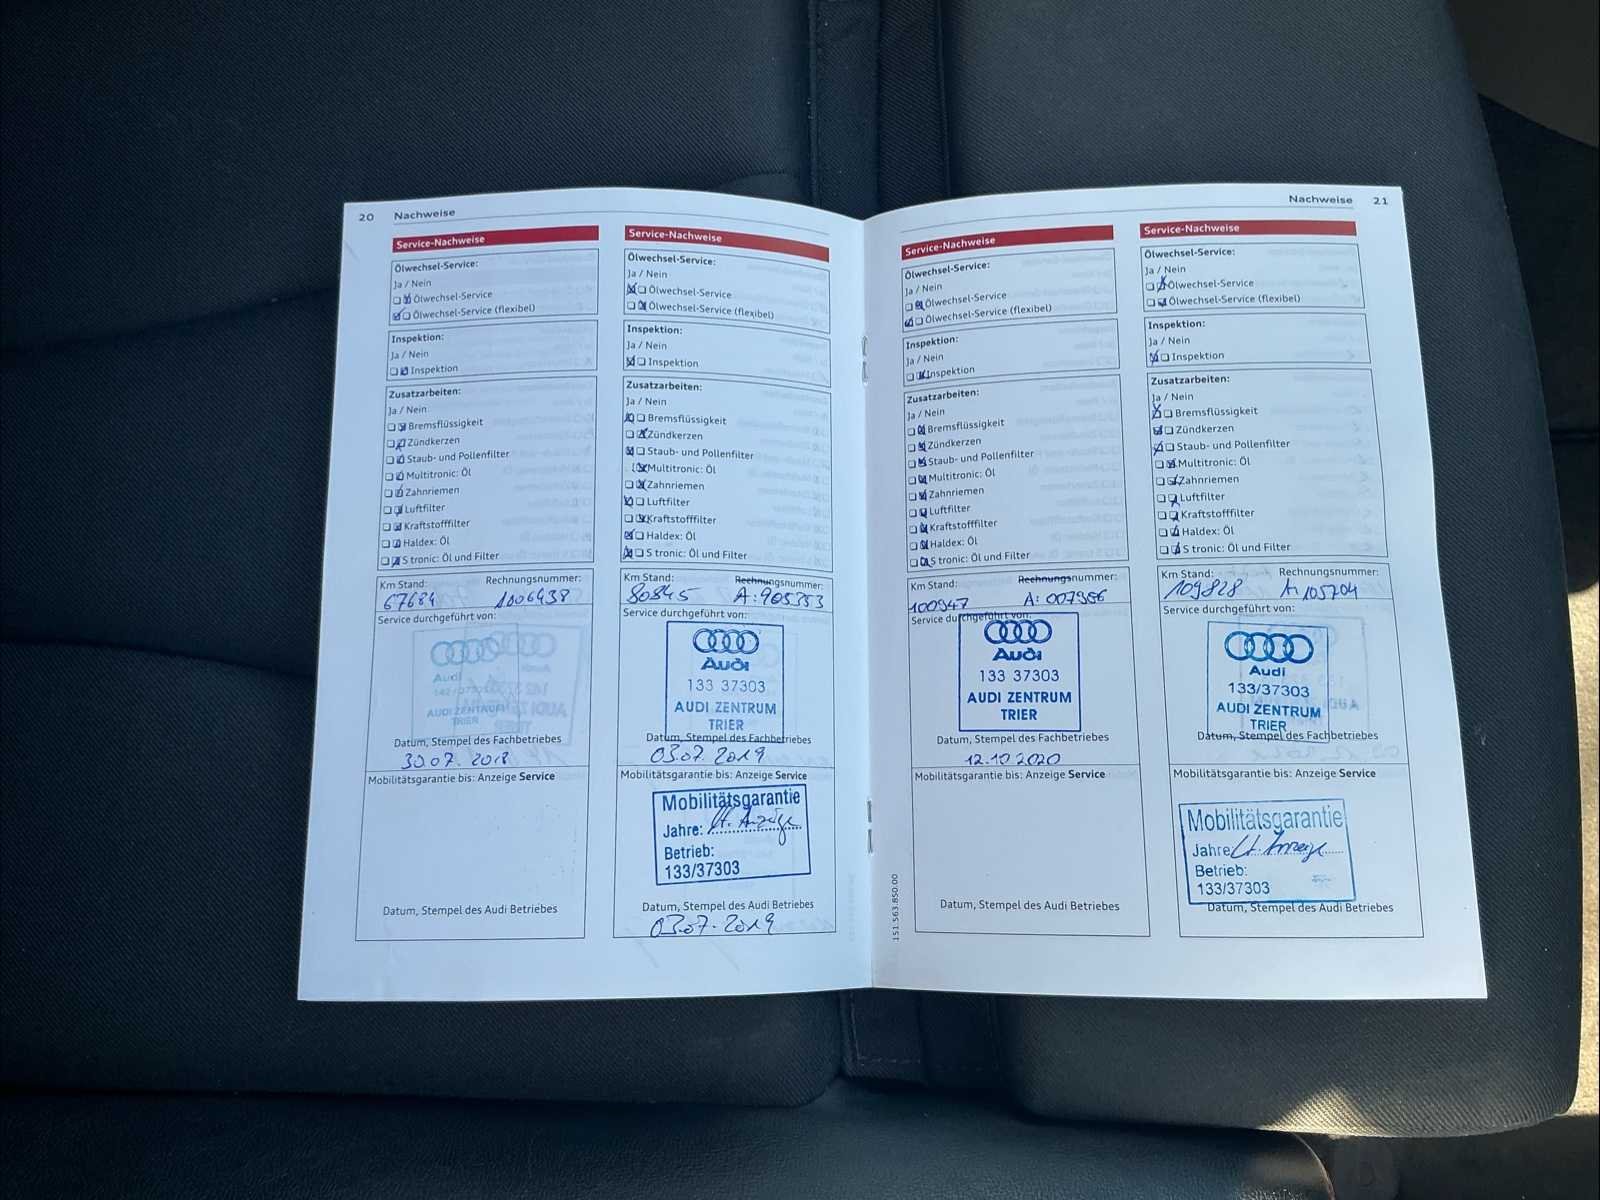 20 Nachweise
Service-Nachweise
Ölwechsel-Service:
Ja / Nein
Ölwechsel-Service
Ölwechsel-Service (flexibel)
Inspektion:
Ja / Nein
Inspektion
Zusatzarbeiten:
Ja / Nein
Bremsflüssigkeit
Zündkerzen
Staub- und Pollenfilter
Multitronic: Öl
Zahnriemen
Luftfilter
Kraftstofffilter
Haldex: Öl
S tronic: Öl und Filter
Km Stand: Rechnungsnummer:
67684 1006438
Service durchgeführt von:
Audi
AUDI ZENTRUM
TRIER
Datum, Stempel des Fachbetriebes
30.07. 2018
Mobilitätsgarantie bis: Anzeige Service
Datum, Stempel des Audi Betriebes
Service-Nachweise
Ölwechsel-Service:
Ja / Nein
Ölwechsel-Service
Ölwechsel-Service (flexibel)
Inspektion:
Ja / Nein
Inspektion
Zusatzarbeiten:
Ja / Nein
Bremsflüssigkeit
Zündkerzen
Staub- und Pollenfilter
Multitronic: Öl
Zahnriemen
Luftfilter
Kraftstofffilter
Haldex: Öl
S tronic: Öl und Filter
Km Stand: Rechnungsnummer:
80845 A:905353
Service durchgeführt von:
Audi
133 37303
AUDI ZENTRUM
TRIER
Datum, Stempel des Fachbetriebes
03.07. 2019
Mobilitätsgarantie bis: Anzeige Service
Mobilitätsgarantie
Jahre: lt. Anzeige
Betrieb:
133/37303
Datum, Stempel des Audi Betriebes
03.07. 2019
Nachweise 21
Service-Nachweise
Ölwechsel-Service:
Ja / Nein
Ölwechsel-Service
Ölwechsel-Service (flexibel)
Inspektion:
Ja / Nein
Inspektion
Zusatzarbeiten:
Ja / Nein
Bremsflüssigkeit
Zündkerzen
Staub- und Pollenfilter
Multitronic: Öl
Zahnriemen
Luftfilter
Kraftstofffilter
Haldex: Öl
S tronic: Öl und Filter
Km Stand: Rechnungsnummer:
100947 A: 007956
Service durchgeführt von:
Audi
133 37303
AUDI ZENTRUM
TRIER
Datum, Stempel des Fachbetriebes
12.10.2020
Mobilitätsgarantie bis: Anzeige Service
Datum, Stempel des Audi Betriebes
151.563.850.00
Service-Nachweise
Ölwechsel-Service:
Ja / Nein
Ölwechsel-Service
Ölwechsel-Service (flexibel)
Inspektion:
Ja / Nein
Inspektion
Zusatzarbeiten:
Ja / Nein
Bremsflüssigkeit
Zündkerzen
Staub- und Pollenfilter
Multitronic: Öl
Zahnriemen
Luftfilter
Kraftstofffilter
Haldex: Öl
S tronic: Öl und Filter
Km Stand: Rechnungsnummer:
109828 A: 105704
Service durchgeführt von:
Audi
133/37303
AUDI ZENTRUM
TRIER
Datum, Stempel des Fachbetriebes
Mobilitätsgarantie bis: Anzeige Service
Mobilitätsgarantie
Jahre lt. Anzeige
Betrieb:
133/37303
Datum, Stempel des Audi Betriebes